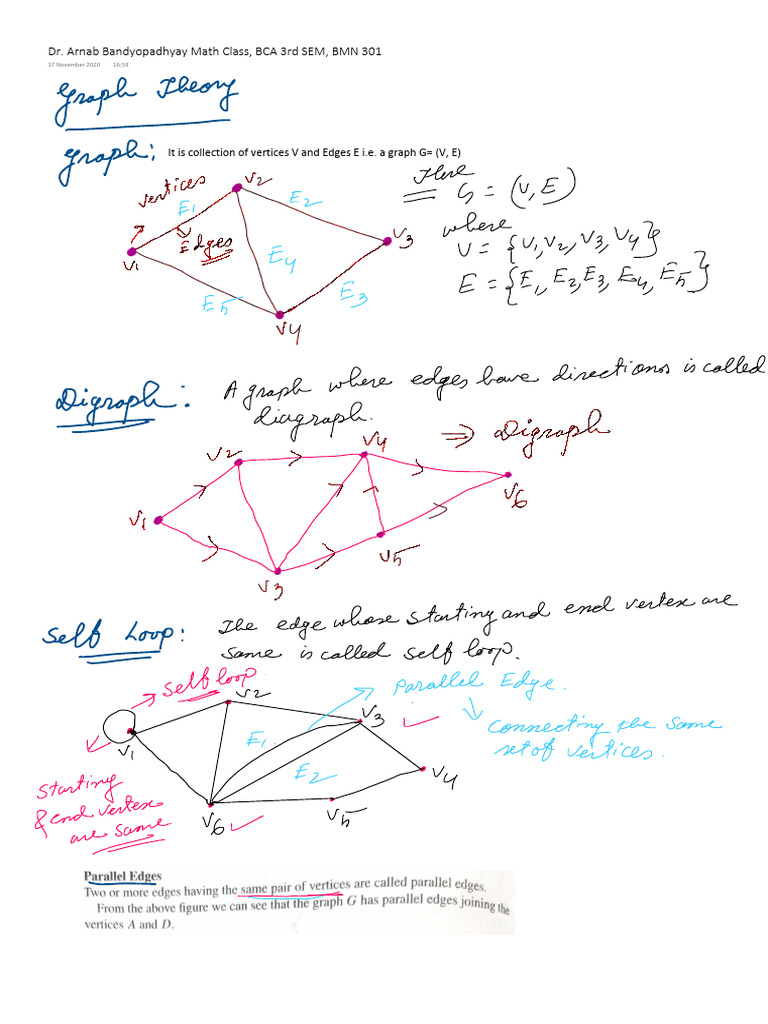 Dr. Arnab Bandyopadhyay Math Class, BCA 3rd SEM, BMN 301
17 November 2020 16:59
Graph Theory
Graph:
It is collection of vertices V and Edges E i.e. a graph G= (V, E)
vertices
V2
E1
E2
Edges
V1
V3
E4
E5
E3
V4
Here
G = (V, E)
where
V = {V1, V2, V3, V4}
E = {E1, E2, E3, E4, E5}
Digraph:
A graph where edges have directions is called
diagraph.
⇒ Digraph
V2
V4
V1
V6
V5
V3
Self Loop:
The edge whose starting and end vertex are
same is called self loop.
self loop
Parallel Edge.
connecting the same
set of vertices.
V2
V3
V1
E1
E2
V4
V5
V6
starting
& end vertex
are same
Parallel Edges
Two or more edges having the same pair of vertices are called parallel edges.
From the above figure we can see that the graph G has parallel edges joining the
vertices A and D.